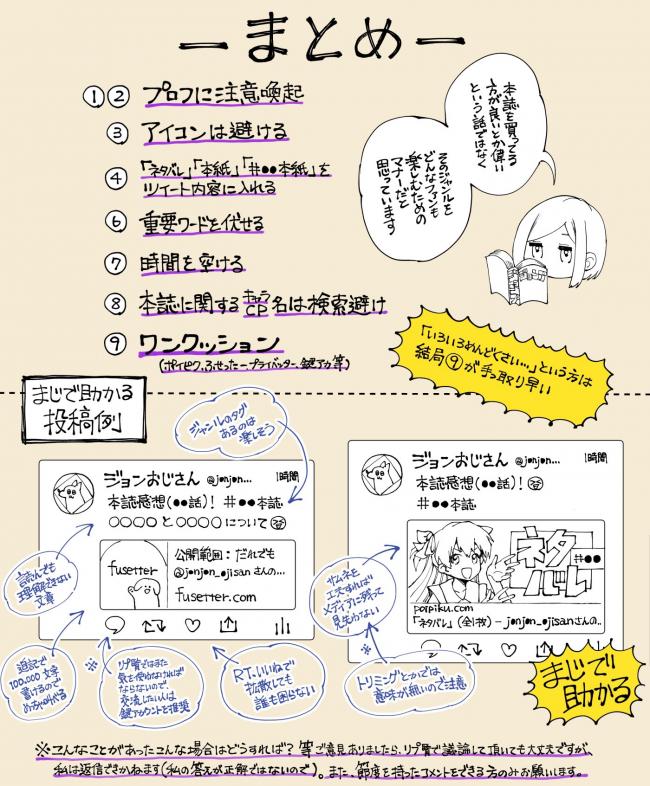 ーまとめー
①② プロフに注意喚起
③ アイコンは避ける
④ 「ネタバレ」「本紙」「#●●本紙」を
ツイート内容に入れる
⑥ 重要ワードを伏せる
⑦ 時間を空ける
⑧ 本誌に関するキャラCP名は検索避け
⑨ ワンクッション
(ポイピク、ふせったー、プライベッター、鍵アカ等)
本誌を買ってる
方が良いとか偉い
という話ではなく
そのジャンルを
どんなファンも
楽しむための
マナーだと
思っています
「いろいろめんどくさい…」という方は
結局⑨が手っ取り早い
まじで助かる
投稿例
ジャンルのタグ
あるのは
楽しそう
ジョンおじさん @jonjon... 1時間
本誌感想(●●話)! #●●本誌
○○○○と○○○○について
fusetter
公開範囲:だれでも
@jonjon_ojisanさんの...
fusetter.com
読んでも
理解できない
文章
追記で
100,000文字
書けるので
めちゃ助かる
※
リプ覧ではまた
気を使わなければ
ならないので、
交流したい人は
鍵アカウントを推奨
RT、いいねで
拡散しても
誰も困らない
ジョンおじさん @jonjon... 1時間
本誌感想(●●話)!
#●●本誌
ネタ
バレ
#●●
poipiku.com
「ネタバレ」(全1枚)-jonjon_ojisanさんの..
2
サムネを
工夫すれば
メディアに残って
見失わない
※
トリミングとかでは
意味が無いので注意
まじで
助かる
※こんなことがあったこんな場合はどうすれば?等ご意見ありましたら、リプ覧で議論して頂いても大丈夫ですが、
私は返信できかねます(私の答えが正解ではないので)。また、節度を持ったコメントをできる方のみお願いします。